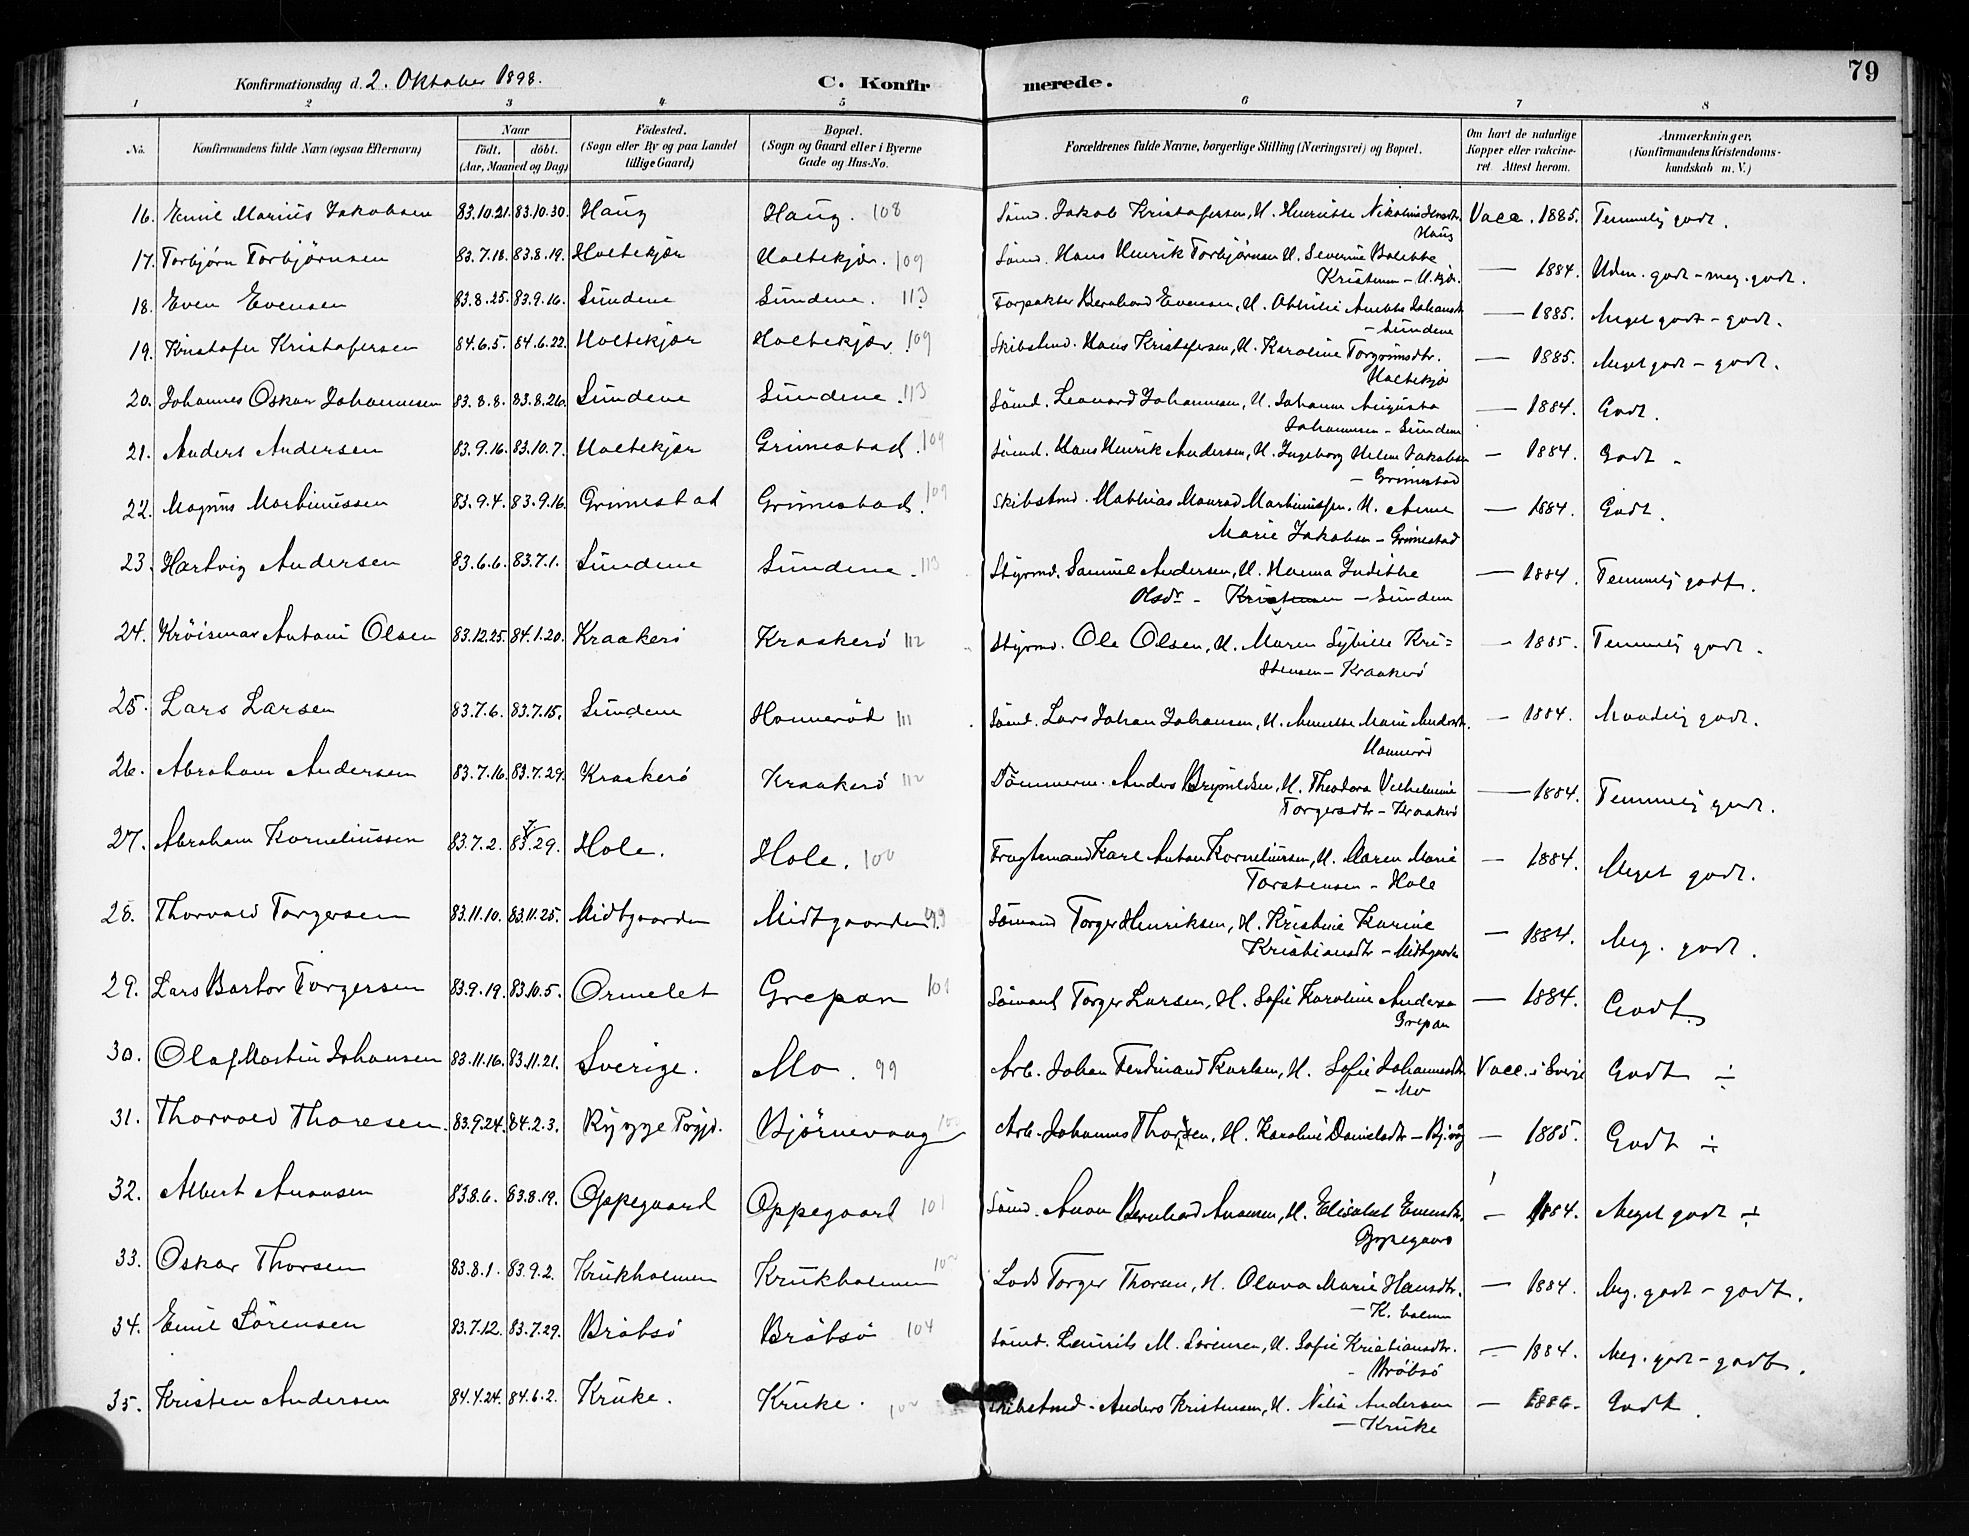 79
Konfirmationsdag d. 2. Oktober 1898. C. Konfir merede.
1 2 3 4 5 6 7 8
No. Konfirmandens fulde Navn (ogsaa Efternavn) Naar födt. döbt. (Aar, Maaned og Dag) Födested. (Sogn eller By og paa Landet tillige Gaard) Bopæl. (Sogn og Gaard eller i Byerne Gade og Hus-No. Forældrenes fulde Navne, borgerlige Stilling (Næringsvei) og Bopæl. Om havt de naturlige Kopper eller vakcineret. Attest herom. Anmærkninger. (Konfirmandens Kristendomskundskab m. V.)
16. Emil Marius Jakobsen 83.10.21. 83.10.30. Haug Haug. 108 Sømd. Jakob Kristofersen, H. Henriette Nikoline Vacc. 1885. Temmelig godt.
Haug
17. Torbjørn Torbjørnsen 83.7.18. 83.8.19. Holtekjær Holtekjær. 109 Sømd. Hans Henrik Torbjørnsen H. Severine Bolette — 1884. Udm. godt - meg. godt.
Kristensen - H.kjær.
18. Even Evensen 83.8.25. 83.9.16. Sundene Sundene. 113 Forpakter Bernhard Evensen, H. Othilie Anette Johansdtr — 1885. Meget godt - godt.
- Sundene
19. Kristofer Kristofersen 84.6.5. 84.6.22. Holtekjær Holtekjær. 109 Skibstmd. Hans Kristofersen, H. Karoline Torgrimsdtr. — 1885. Meget godt - godt.
Holtekjær
20. Johannes Oskar Johannesen 83.8.8. 83.8.26. Sundene Sundene. 113 Sømd. Leonard Johannesen, H. Johanne Augusta — 1884. Godt.
Johannesen - Sundene
21. Anders Andersen 83.9.16. 83.10.7. Holtekjær Grimestad. 109 Sømd. Hans Henrik Andersen, H. Ingeborg Helene Jakobsen — 1884. Godt.
- Grimestad
22. Magnus Martinussen 83.9.4. 83.9.16. Grimestad Grimestad. 109 Skibstmd. Mathias Konrad Martinussen. H. Anne — 1884. Godt.
Marie Jakobsen - Grimestad
23. Hartvig Andersen 83.6.6. 83.7.1. Sundene Sundene. 113 Styrmd. Samuel Andersen, H. Hanna Judithe — 1884. Temmelig godt.
Olsdr - Kristensen - Sundene
24. Krøismar Antoni Olsen 83.12.25. 84.1.20. Kraakerö Kraakerö 112 Styrmd. Ole Olsen, H. Maren Sybille Kri= — 1885. Temmelig godt.
stensen - Kraakerö
25. Lars Larsen 83.7.6. 83.7.15. Sundene Honnerød 111 Sømd. Lars Johan Johansen, H. Annette Marie Andersdtr. — 1884. Maadelig godt.
26. Abraham Andersen 83.7.16. 83.7.29. Kraakerö Kraakerö 112 Tømmerm. Anders Brynildsen, H. Theodora Vilhelmine — 1884. Temmelig godt.
Torgersdtr - Kraakerö
27. Abraham Korneliussen 83.7.2. 83.7.29. Hole. Hole. 100 Fragtemand Karl Anton Korneliussen, H. Maren Marie — 1884. Meget godt.
Torstensen - Hole
28. Thorvald Torgersen 83.11.10. 83.11.25. Midtgaarden Midtgaarden. 99 Sømand Torger Henriksen, H. Kristine Karine — 1884. Meg. godt.
Kristiansdtr - Midtgaarden
29. Lars Barbor Torgersen 83.9.19. 83.10.5. Ormelet Grepan 101 Sømand Torger Larsen, H. Sofie Karoline Andersen — 1884. Godt.
Grepan
30. Olaf Martin Johansen 83.11.16. 83.11.21. Sverige. Mo. 99 Arb. Johan Ferdinand Karlsen, H. Sofie Johannesdtr Vacc. i Sverige Godt ÷
- Mo
31. Thorvald Thoresen. 83.9.24. 84.2.3. Rygge Prgjd. Bjørnevaag 100 Arb. Johannes Thorsen, H. Karoline Danielsdtr - Bj.våg — 1885. Godt ÷
32. Albert Anonsen 83.8.6. 83.8.19. Oppegaard Oppegaard 101 Sømd. Anon Bernhard Anonsen, H. Elisabet Evensdtr. — 1884. Meget godt ÷
Oppegaard
33. Oskar Thorsen 83.8.1. 83.9.2. Krukholmen Krukholmen 102 Lods Torger Thorsen, H. Olava Marie Hansdtr. — 1884. Meg. godt - godt.
- K. holmen
34. Emil Sörensen 83.7.12. 83.7.29. Bröbsö Bröbsö 104 Sömd. Laurits M. Sörensen, H. Sofie Kristiansdtr. — 1884. Meg. godt - godt.
- Bröbsö
35. Kristen Andersen 84.4.24. 84.6.2. Kruke. Kruke. 102 Skibstmd. Anders Kristensen, H. Nilia Andersen — 1886. Godt.
— Kruke